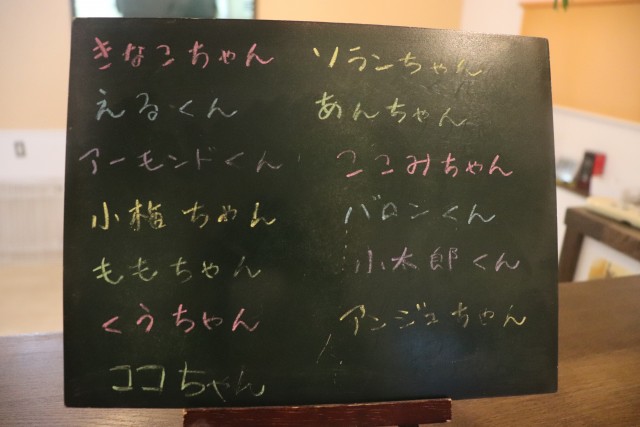 きなこちゃん
えるくん
アーモンドくん
小梅ちゃん
ももちゃん
くうちゃん
ココちゃん
ソランちゃん
あんちゃん
ここみちゃん
バロンくん
小太郎くん
アンジュちゃん